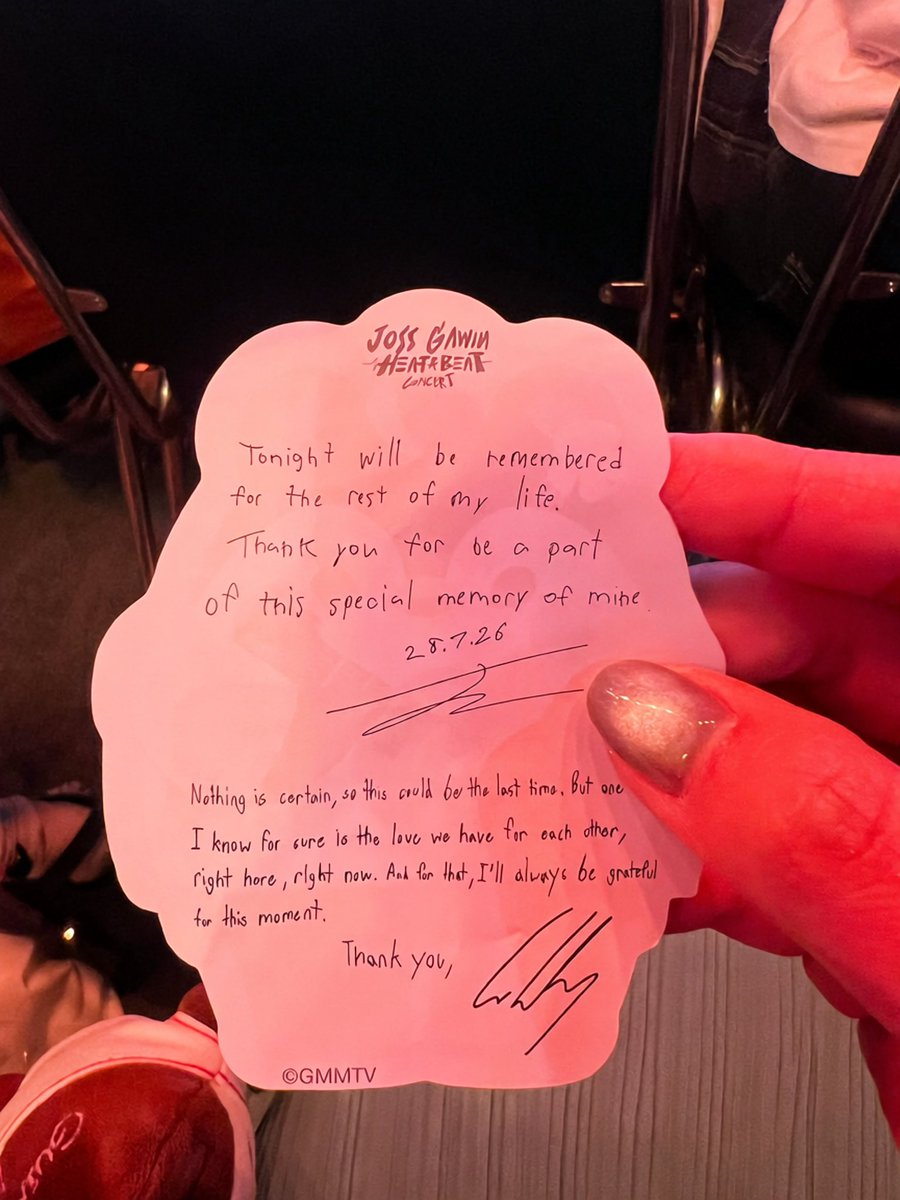 JOSS GAWIN
HEAT & BEAT
CONCERT
Tonight will be remembered
for the rest of my life.
Thank you for be a part
of this special memory of mine.
28.7.26
Nothing is certain, so this could be the last time. But one
I know for sure is the love we have for each other,
right here, right now. And for that, I'll always be grateful
for this moment.
Thank you,
©GMMTV